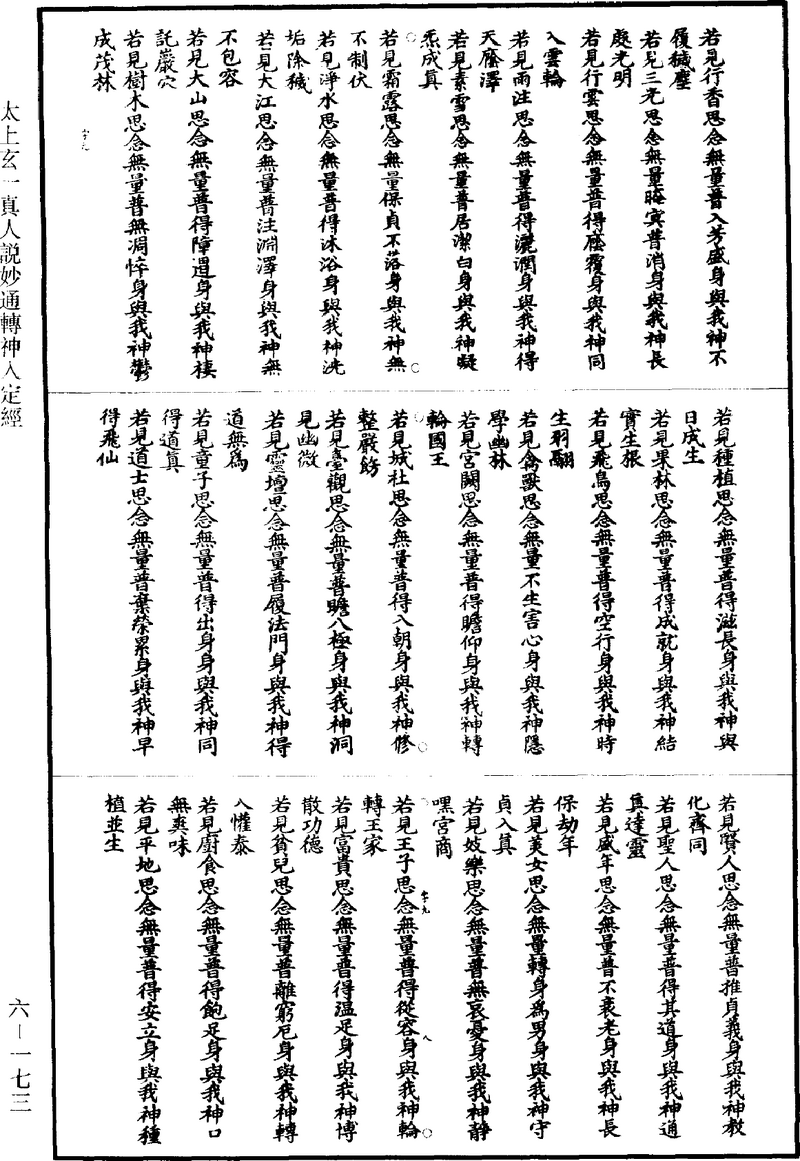 若見行香思念無量普入芳盛身與我神不
履穢塵
若見三光思念無量晦冥普消身與我神長
處光明
若見行雲思念無量普得廕覆身與我神同
入雲輪
若見雨注思念無量普得灑潤身與我神得
天廕澤
若見素雪思念無量普居潔白身與我神凝
炁成真
若見霜露思念無量保貞不落身與我神無
不制伏
若見淨水思念無量普得沐浴身與我神洗
垢除穢
若見大江思念無量普注淵澤身與我神無
不包容
若見大山思念無量普得障遏身與我神棲
託巖穴
若見樹木思念無量普無凋悴身與我神鬱
成茂林
若見種植思念無量普得滋長身與我神與
日成生
若見果林思念無量普得成就身與我神結
實生根
若見飛鳥思念無量普得空行身與我神時
生羽翮
若見禽獸思念無量不生害心身與我神隱
學幽林
若見宮闕思念無量普得瞻仰身與我神轉
輪國王
若見城社思念無量普得入朝身與我神修
整嚴飭
若見臺觀思念無量普瞻八極身與我神洞
見幽微
若見靈壇思念無量普履法門身與我神得
道無為
若見童子思念無量普得出身身與我神同
得道真
若見道士思念無量普棄榮累身與我神早
得飛仙
若見賢人思念無量普推貞義身與我神教
化齊同
若見聖人思念無量普得其道身與我神通
真達靈
若見盛年思念無量普不衰老身與我神長
保劫年
若見美女思念無量轉身為男身與我神守
貞入真
若見妓樂思念無量普無哀憂身與我神靜
嘿宮商
若見王子思念無量普得從容身與我神輪
轉王家
若見富貴思念無量普得溫足身與我神博
散功德
若見貧兒思念無量普離窮厄身與我神轉
入懽泰
若見廚食思念無量普得飽足身與我神口
無爽味
若見平地思念無量普得安立身與我神種
植並生
太上玄一真人說妙通轉神入定經
六－一七三